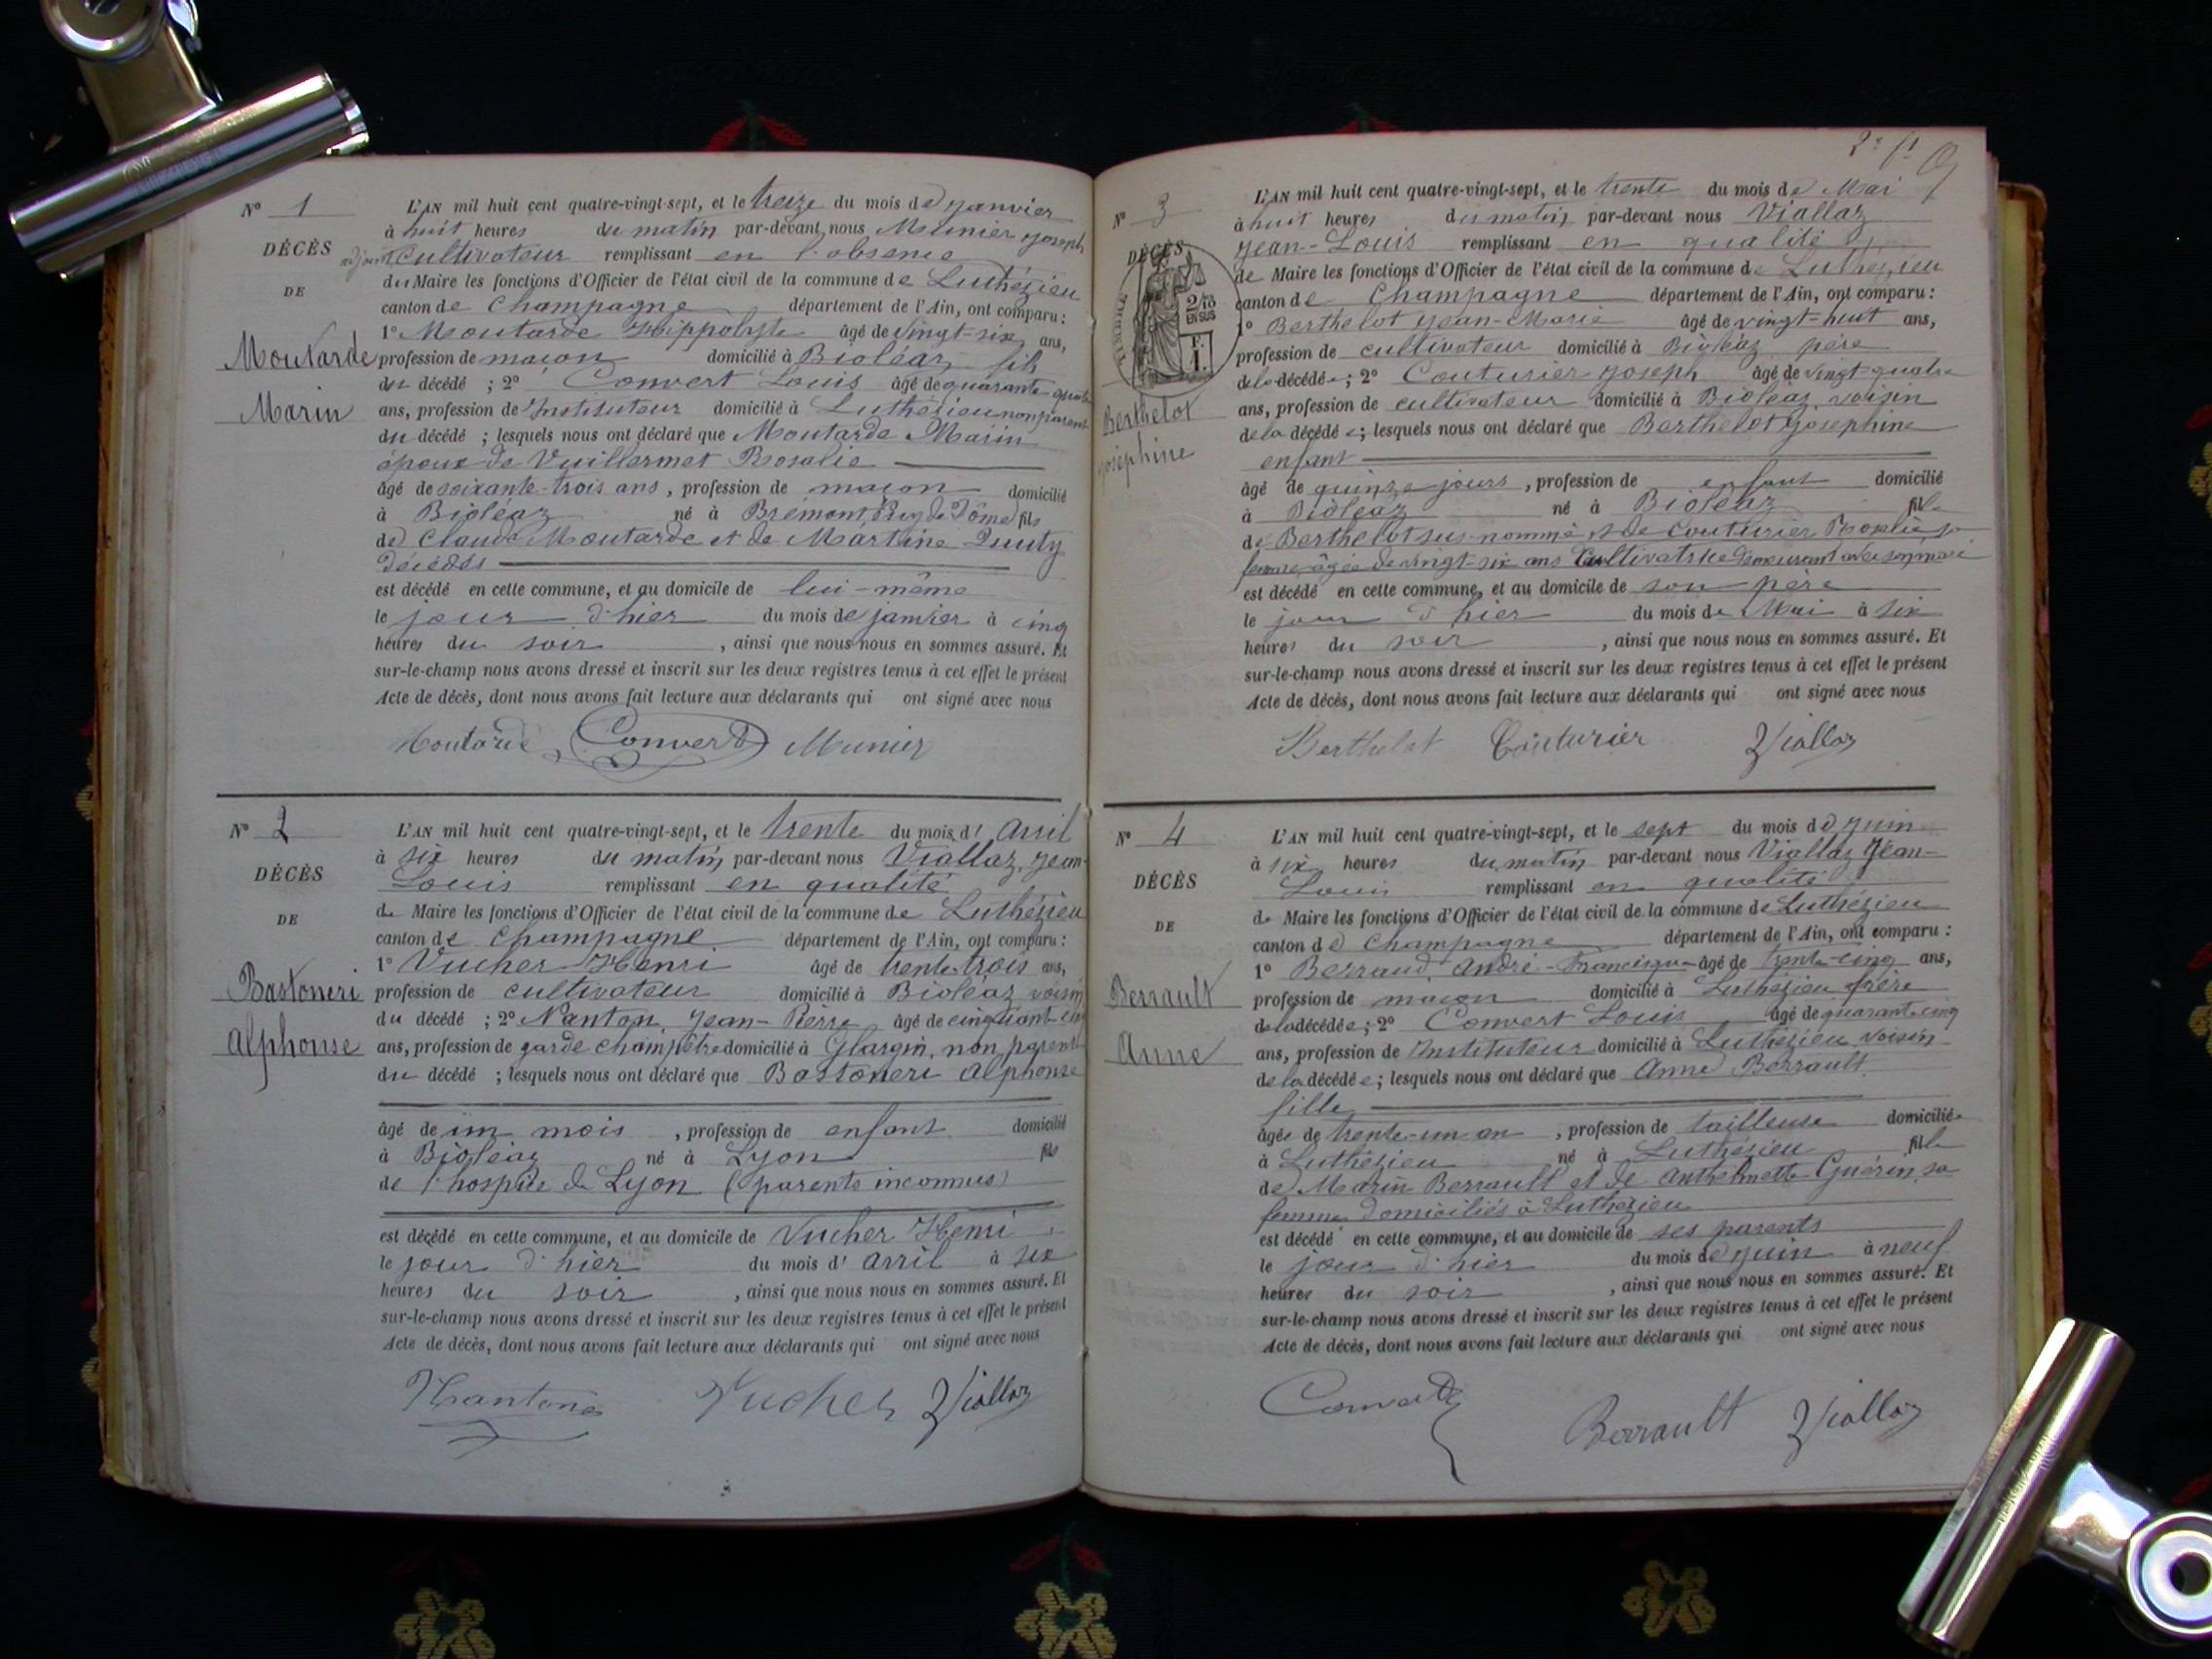 N° 1
DÉCÈS
DE
Moutarde
Marin
L'AN mil huit cent quatre-vingt-sept, et le treize du mois de janvier
à huit heures du matin par-devant nous Meunier Joseph
adjoint Cultivateur remplissant en l'absence
du Maire les fonctions d'Officier de l'état civil de la commune de Luthézieu
canton de Champagne département de l'Ain, ont comparu :
1° Moutarde Hippolyte âgé de vingt-six ans,
profession de maçon domicilié à Bioléaz fils
du décédé ; 2° Convert Louis âgé de quarante-quatre
ans, profession de Instituteur domicilié à Luthézieu non parent
du décédé ; lesquels nous ont déclaré que Moutarde Marin
époux de Vuillermet Rosalie
âgé de soixante-trois ans, profession de maçon domicilié
à Bioléaz né à Brémont, Puy de Dôme fils
de Claude Moutarde et de Martine
décédés
est décédé en cette commune, et au domicile de lui-même
le jour d'hier du mois de janvier à cinq
heures du soir , ainsi que nous nous en sommes assuré. Et
sur-le-champ nous avons dressé et inscrit sur les deux registres tenus à cet effet le présent
Acte de décès, dont nous avons fait lecture aux déclarants qui ont signé avec nous
Moutarde Convert Munier
N° 2
DÉCÈS
DE
Bastoneri
Alphonse
L'AN mil huit cent quatre-vingt-sept, et le trente du mois d'Avril
à six heures du matin par-devant nous Viallaz, Jean-
Louis remplissant en qualité
de Maire les fonctions d'Officier de l'état civil de la commune de Luthézieu
canton de Champagne. département de l'Ain, ont comparu :
1° Vucher Henri âgé de trente-trois ans,
profession de cultivateur domicilié à Bioléaz voisin
du décédé ; 2° Nanton, Jean-Pierre âgé de cinquante
ans, profession de garde champêtre domicilié à Glargin, non parent
du décédé ; lesquels nous ont déclaré que Bastoneri Alphonse
âgé de un mois , profession de enfant domicilié
à Bioléaz né à Lyon fils
de l'hospice de Lyon (parents inconnus)
est décédé en cette commune, et au domicile de Vucher Henri
le jour d'hier du mois d'Avril à six
heures du soir , ainsi que nous nous en sommes assuré. Et
sur-le-champ nous avons dressé et inscrit sur les deux registres tenus à cet effet le présent
Acte de décès, dont nous avons fait lecture aux déclarants qui ont signé avec nous
Vucher Viallaz
2e ft
N° 3
DÉCÈS
TIMBRE
2/10
EN SUS
F.
1.
Berthelot
Joséphine
L'AN mil huit cent quatre-vingt-sept, et le trente du mois de Mai
à huit heures du matin par-devant nous Viallaz
Jean-Louis remplissant en qualité
de Maire les fonctions d'Officier de l'état civil de la commune de Luthézieu
canton de Champagne département de l'Ain, ont comparu :
1° Berthelot Jean-Marie âgé de vingt-huit ans,
profession de cultivateur domicilié à Bioléaz père
de la décédée ; 2° Couturier Joseph âgé de vingt-quatre
ans, profession de cultivateur domicilié à Bioléaz, voisin
de la décédée ; lesquels nous ont déclaré que Berthelot Joséphine
enfant
âgé de quinze jours , profession de enfant domicilié
à Bioléaz né à Bioléaz fille
de Berthelot sus-nommé et de Couturier Rosalie, sa
femme, âgée de vingt-six ans Cultivatrice demeurant avec son mari
est décédé en cette commune, et au domicile de son père
le jour d'hier du mois de Mai à six
heures du soir , ainsi que nous nous en sommes assuré. Et
sur-le-champ nous avons dressé et inscrit sur les deux registres tenus à cet effet le présent
Acte de décès, dont nous avons fait lecture aux déclarants qui ont signé avec nous
Berthelot Couturier Viallaz
N° 4
DÉCÈS
DE
Berrault
Anne
L'AN mil huit cent quatre-vingt-sept, et le sept du mois de Juin
à six heures du matin par-devant nous Viallaz Jean-
Louis remplissant en qualité
de Maire les fonctions d'Officier de l'état civil de la commune de Luthézieu
canton de Champagne département de l'Ain, ont comparu :
1° Berraud, André-Francisque âgé de trente-cinq ans,
profession de maçon domicilié à Luthézieu, frère
de la décédée ; 2° Convert Louis âgé de quarante-cinq
ans, profession de Instituteur domicilié à Luthézieu, voisin
de la décédée ; lesquels nous ont déclaré que Anne Berrault
fille
âgée de trente-un an , profession de tailleuse domiciliée
à Luthézieu né à Luthézieu fille
de Marin Berrault et de Anthelmette Guérin, sa
femme domiciliés à Luthézieu
est décédé en cette commune, et au domicile de ses parents
le jour d'hier du mois de Juin à neuf
heures du soir , ainsi que nous nous en sommes assuré. Et
sur-le-champ nous avons dressé et inscrit sur les deux registres tenus à cet effet le présent
Acte de décès, dont nous avons fait lecture aux déclarants qui ont signé avec nous
Convert Berrault Viallaz